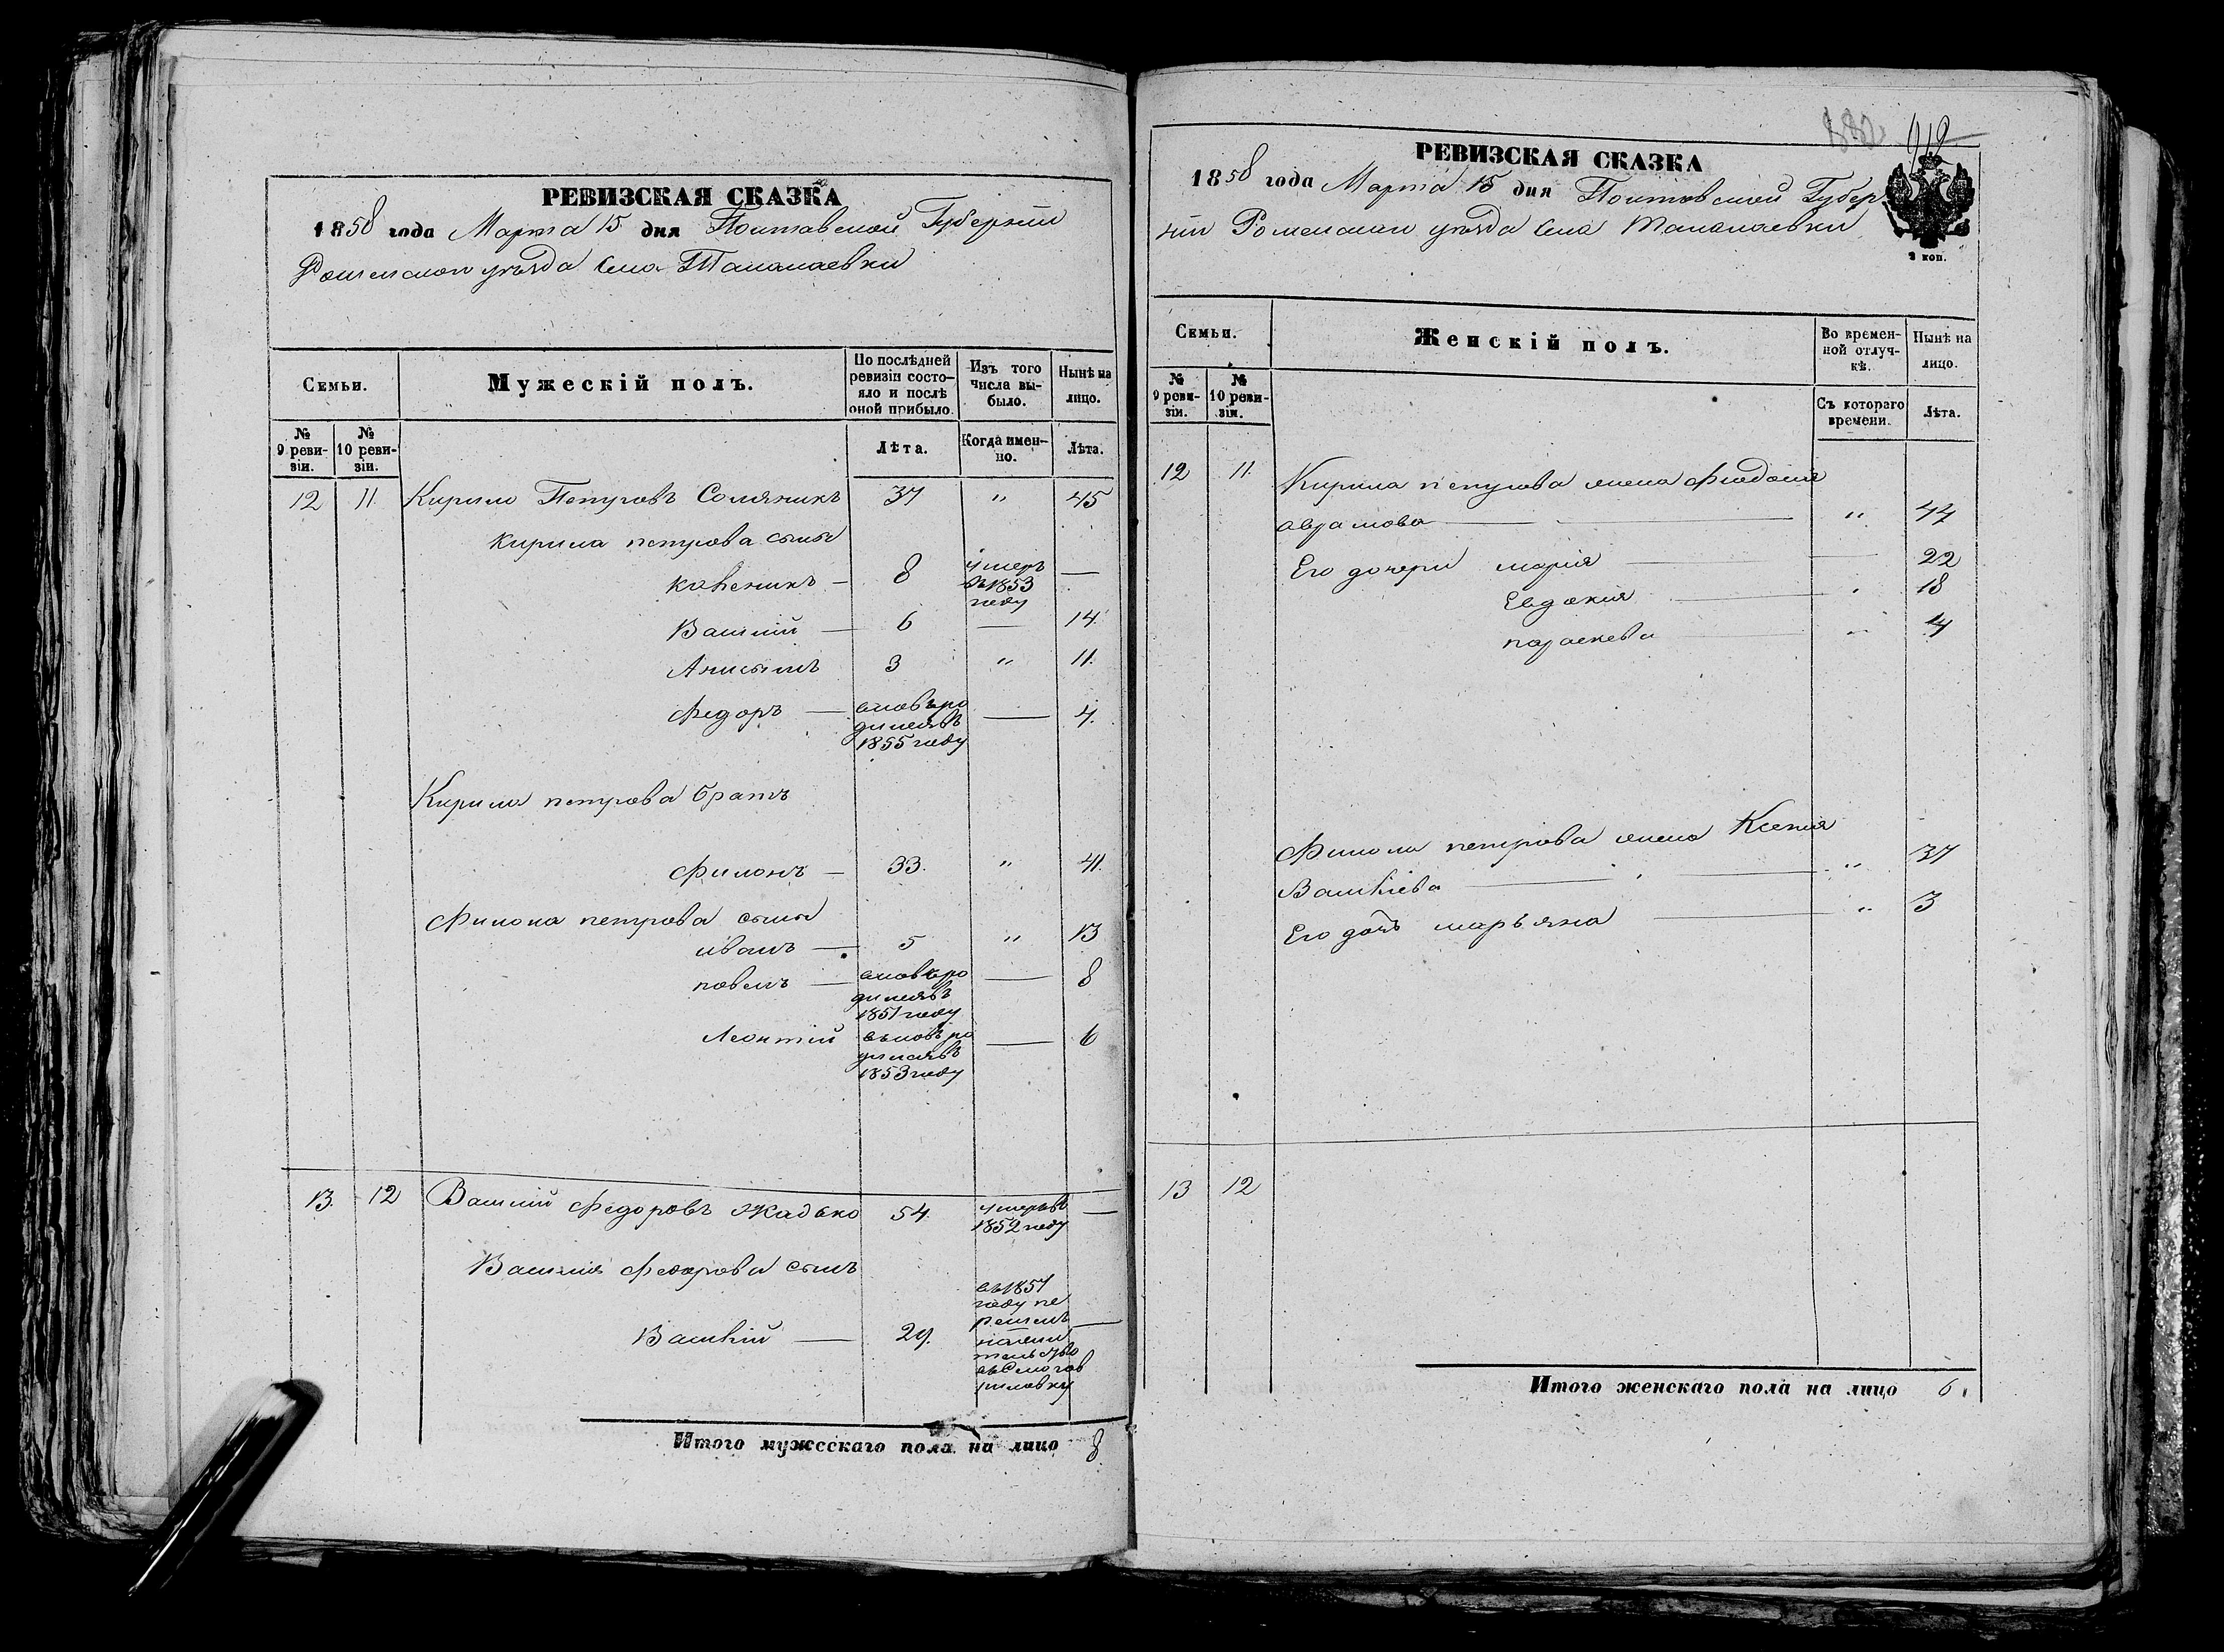 РЕВИЗСКАЯ СКАЗКА
1858 года Марта 15 дня Полтавской Губерніи
Роменскаго уѣзда Села Талалаевки
Семьи.
Мужескій полъ.
По послѣдней ревизіи состояло и послѣ оной прибыло.
Изъ того числа выбыло.
Нынѣ на лицо.
№ 9 ревизіи.
№ 10 ревизіи.
Лѣта.
Когда именно.
Лѣта.
12 11. Кирило Петровъ Соляникъ 37 " 45
Кирила петрова сыны
8 умеръ въ 1853 году —
Василій — 6 — 14.
Анисимъ 3 " 11.
Федоръ — вновь родился въ 1855 году — 4.
Кирила петрова братъ
Филонъ — 33. " 41.
Филона петрова сыны
иванъ — 5 " 13
павелъ — вновь родился въ 1851 году — 8
Леонтій вновь родился въ 1853 году — 6
13. 12 Василій Федоровъ Жадько 54. умеръ въ 1852 году —
Василія Федорова сынъ
Василій — 29. въ 1851 году —
Итого мужескаго пола на лицо 8
912
РЕВИЗСКАЯ СКАЗКА
1858 года Марта 15 дня Полтавской Губер
ніи Роменскаго уѣзда Села Талалаевки
2 коп.
Семьи.
Женскій полъ.
Во временной отлучкѣ.
Нынѣ на лицо.
№ 9 ревизіи.
№ 10 ревизіи.
Съ котораго времени.
Лѣта.
12 11. Кирила петрова жена Феодосія
аврамова — " 44
Его дочери марія — 22
Евдокия — 18
параскева — " 4
Филона петрова жена Ксенія
Василіева — " 37
Его дочь марьяна — " 3
13 12
Итого женскаго пола на лицо 6.